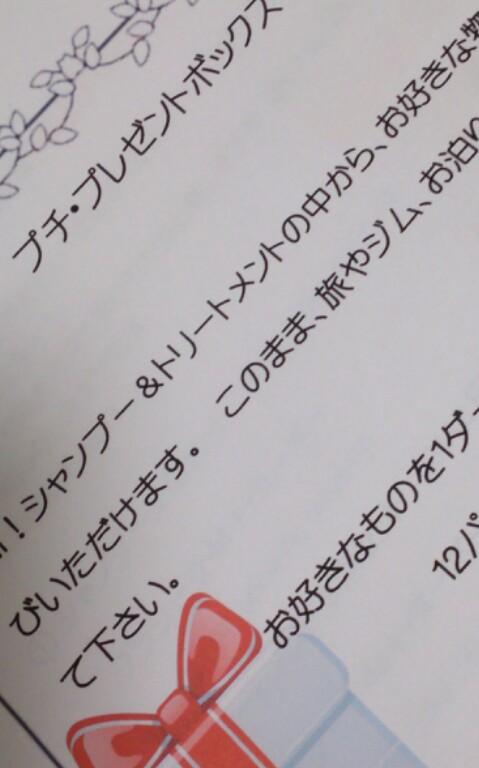 プチ・プレゼントボックス
！シャンプー＆トリートメントの中から、お好きな
びいただけます。 このまま、旅やジム、お泊り
て下さい。
お好きなものを1ダー
12パ